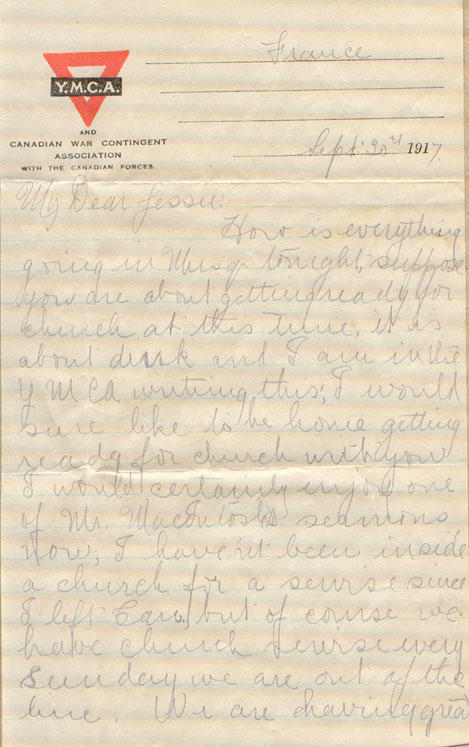 France
Y.M.C.A.
AND
CANADIAN WAR CONTINGENT
ASSOCIATION
WITH THE CANADIAN FORCES.
Sept. 30th 1917.
My Dear Jessie:
How is everything
going in Musq. tonight, suppose
you are about getting ready for
church at this time, it is
about dusk and I am in the
Y M C A writing this; I would
sure like to be home getting
ready for church with you
I would certainly enjoy one
of Mr. MacIntoshs sermons
now; I have'nt been inside
a church for a servise since
I left Can, but of course we
have church servise every
Sunday we are out of the
line. We are having grea